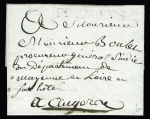 A Monsieur
Monsieur Boulet
procureur general Sindic
du Departement de
mayenne et Loire en
son hotel
a angers